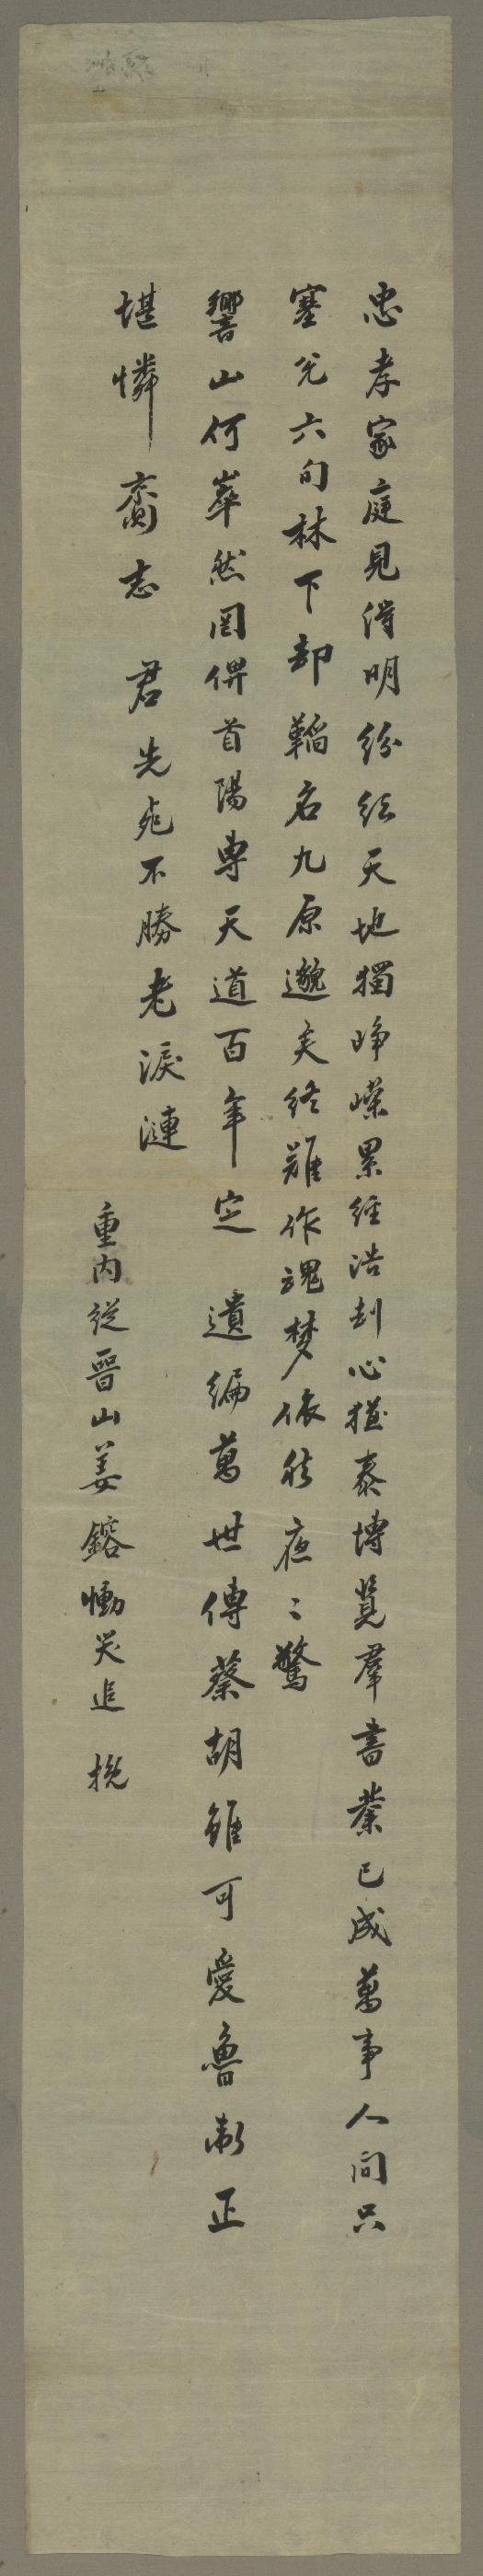 忠孝家庭見得明紛紜天地獨崢嶸累經浩刦心猶泰博覽羣書業已成萬事人間只
塞兌六旬林下却韜名九原邈矣終難作魂梦依然夜〻驚
響山何崒然罔倂首陽專天道百年定 遺編萬世傳蔡胡雖可愛魯衛正
堪憐 齎志 君先死不勝老淚漣
重內從晉山姜鎔慟哭追 挽